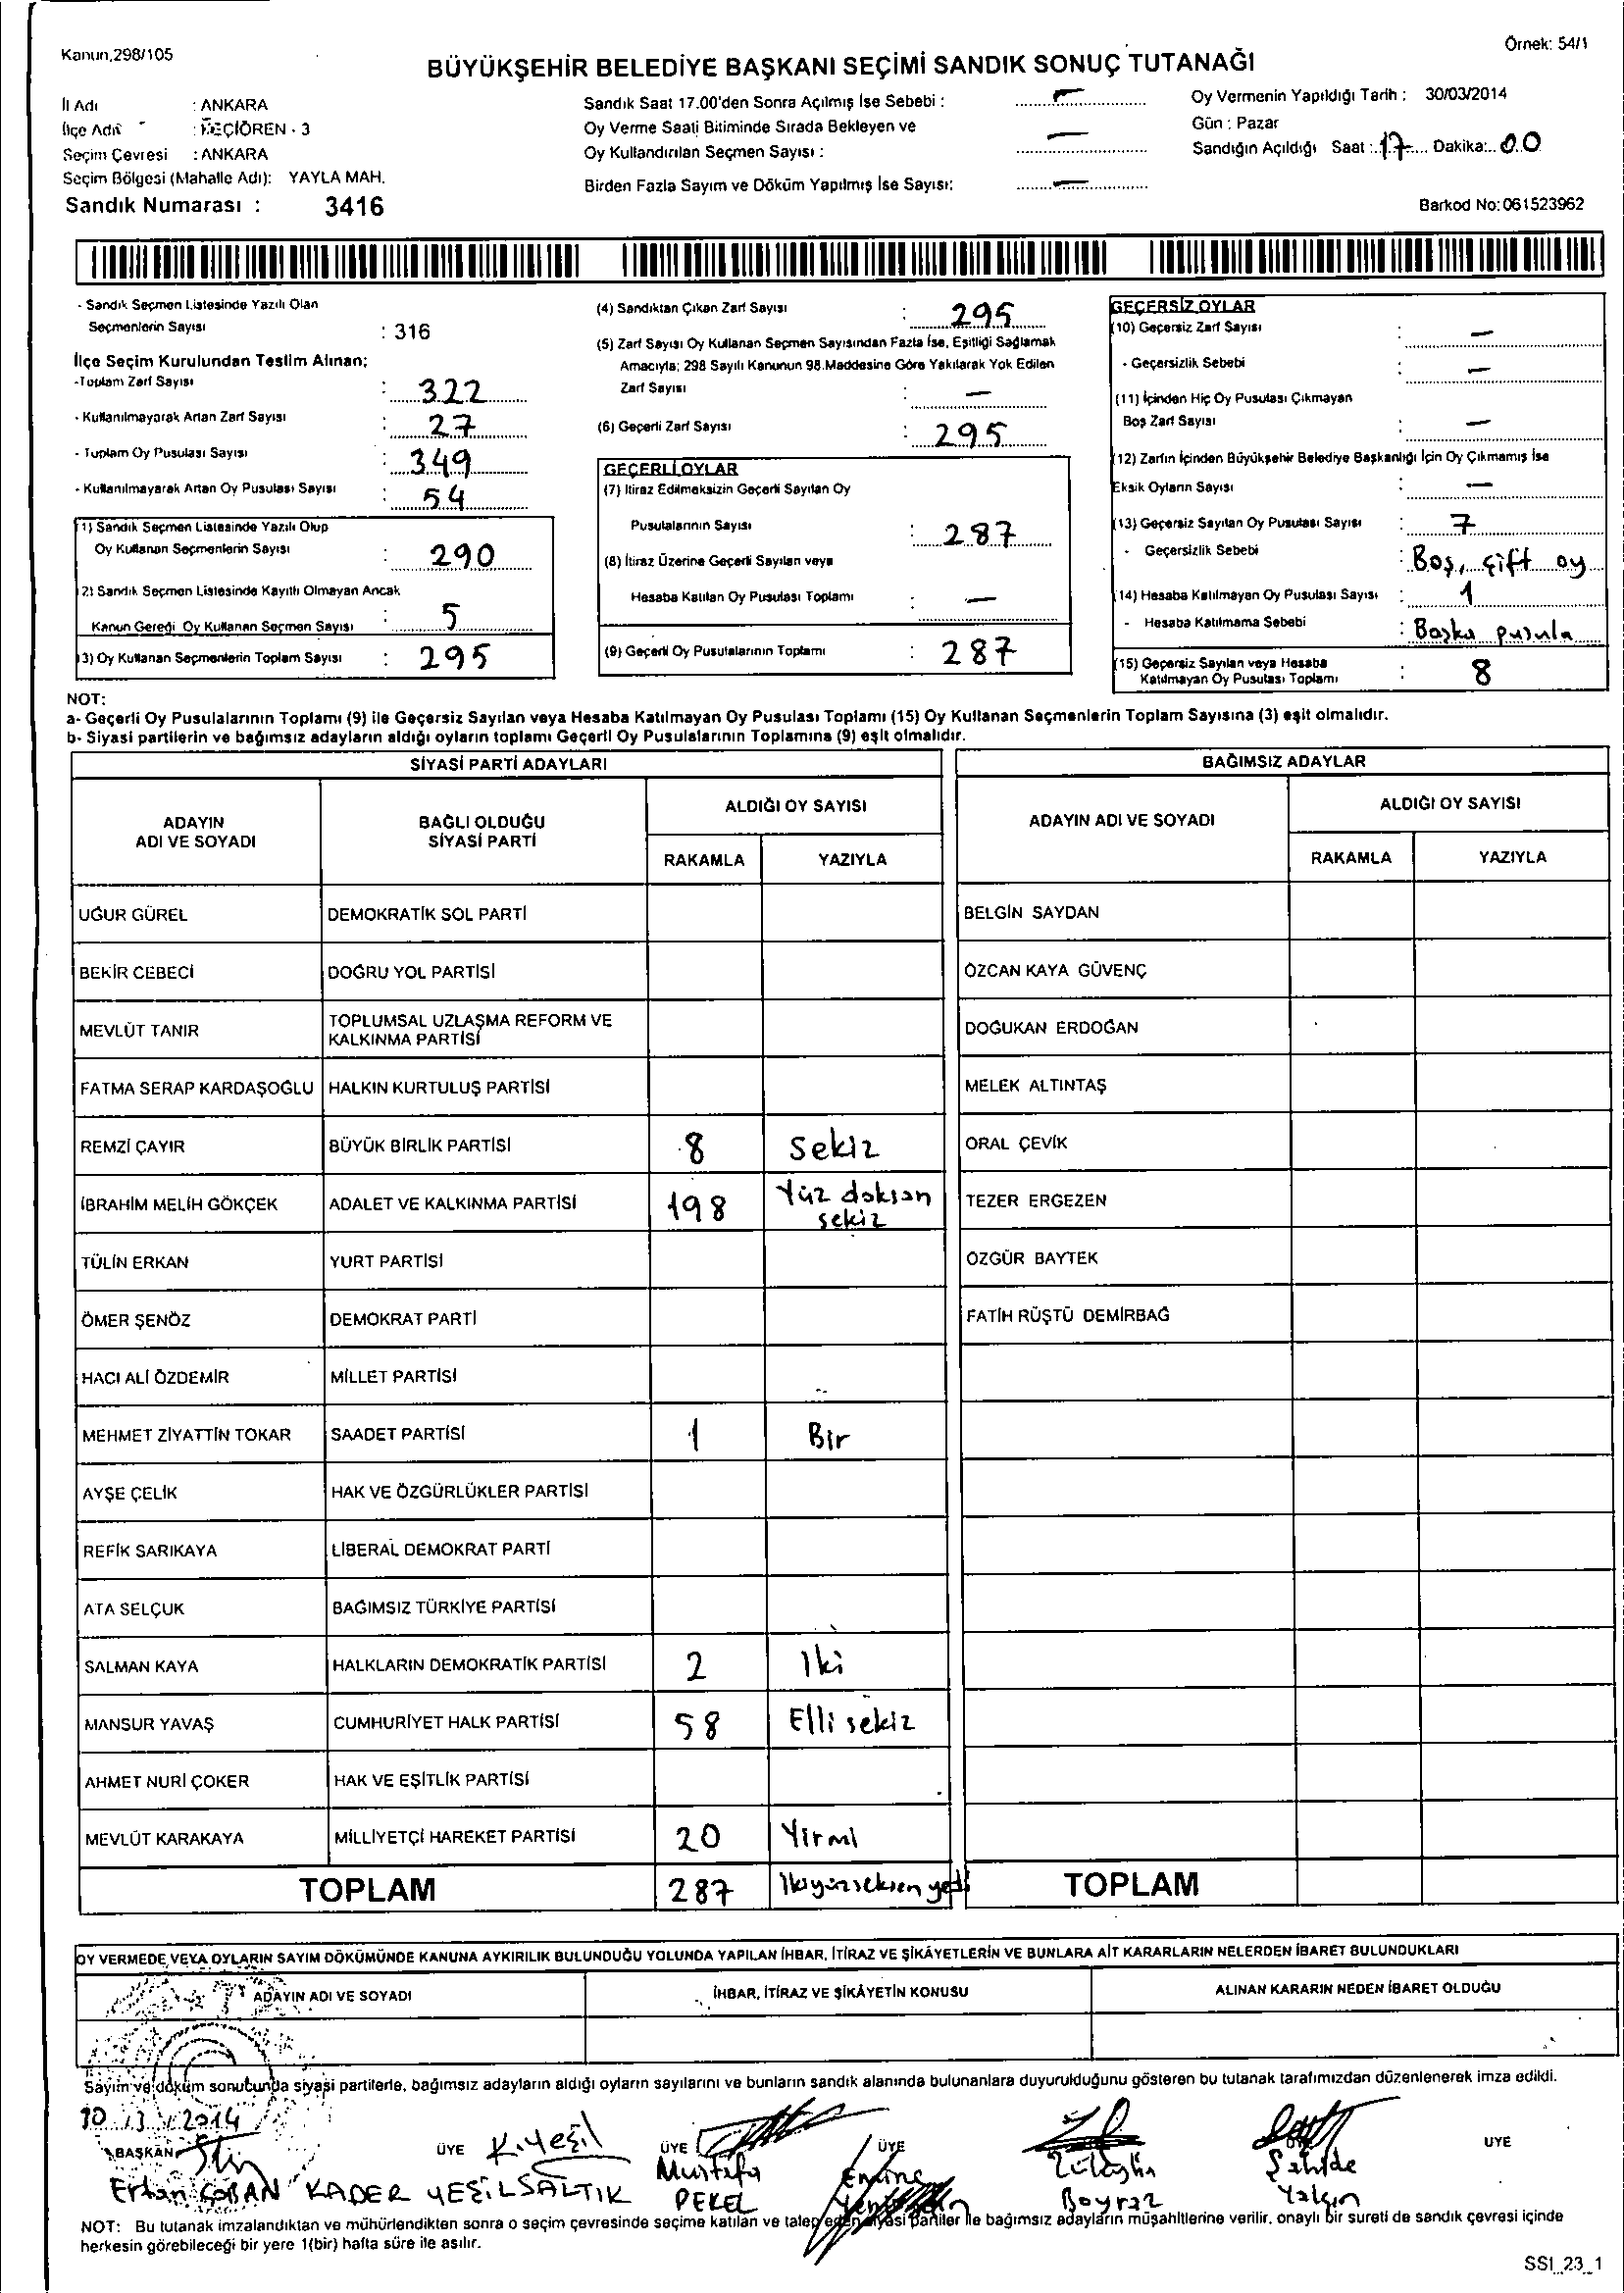 Kanun,298/105
Örnek: 54/1
BÜYÜKŞEHİR BELEDİYE BAŞKANI SEÇİMİ SANDIK SONUÇ TUTANAĞI
İl Adı : ANKARA
İlçe Adı : KEÇİÖREN - 3
Seçim Çevresi : ANKARA
Seçim Bölgesi (Mahalle Adı): YAYLA MAH.
Sandık Numarası : 3416
Sandık Saat 17.00'den Sonra Açılmış İse Sebebi : —
Oy Verme Saati Bitiminde Sırada Bekleyen ve
Oy Kullandırılan Seçmen Sayısı : —
Birden Fazla Sayım ve Döküm Yapılmış İse Sayısı: —
Oy Vermenin Yapıldığı Tarih : 30/03/2014
Gün : Pazar
Sandığın Açıldığı Saat : 17 Dakika: 00
Barkod No: 061523962
- Sandık Seçmen Listesinde Yazılı Olan
Seçmenlerin Sayısı : 316
İlçe Seçim Kurulundan Teslim Alınan;
-Toplam Zarf Sayısı : 322
- Kullanılmayarak Artan Zarf Sayısı : 27
- Toplam Oy Pusulası Sayısı : 349
- Kullanılmayarak Artan Oy Pusulası Sayısı : 54
(1) Sandık Seçmen Listesinde Yazılı Olup
Oy Kullanan Seçmenlerin Sayısı : 290
2) Sandık Seçmen Listesinde Kayıtlı Olmayan Ancak
Kanun Gereği Oy Kullanan Seçmen Sayısı : 5
(3) Oy Kullanan Seçmenlerin Toplam Sayısı : 295
(4) Sandıktan Çıkan Zarf Sayısı : 295
(5) Zarf Sayısı Oy Kullanan Seçmen Sayısından Fazla İse, Eşitliği Sağlamak
Amacıyla; 298 Sayılı Kanunun 98.Maddesine Göre Yakılarak Yok Edilen
Zarf Sayısı : —
(6) Geçerli Zarf Sayısı : 295
GEÇERLİ OYLAR
(7) İtiraz Edilmeksizin Geçerli Sayılan Oy
Pusulalarının Sayısı : 287
(8) İtiraz Üzerine Geçerli Sayılan veya
Hesaba Katılan Oy Pusulası Toplamı : —
(9) Geçerli Oy Pusulalarının Toplamı : 287
GEÇERSİZ OYLAR
(10) Geçersiz Zarf Sayısı : —
- Geçersizlik Sebebi : —
(11) İçinden Hiç Oy Pusulası Çıkmayan
Boş Zarf Sayısı : —
(12) Zarfın İçinden Büyükşehir Belediye Başkanlığı İçin Oy Çıkmamış İse
Eksik Oyların Sayısı : —
(13) Geçersiz Sayılan Oy Pusulası Sayısı : 7
- Geçersizlik Sebebi : Boş, çift oy
(14) Hesaba Katılmayan Oy Pusulası Sayısı : 1
- Hesaba Katılmama Sebebi : Başka pusula
(15) Geçersiz Sayılan veya Hesaba
Katılmayan Oy Pusulası Toplamı : 8
NOT:
a- Geçerli Oy Pusulalarının Toplamı (9) ile Geçersiz Sayılan veya Hesaba Katılmayan Oy Pusulası Toplamı (15) Oy Kullanan Seçmenlerin Toplam Sayısına (3) eşit olmalıdır.
b- Siyasi partilerin ve bağımsız adayların aldığı oyların toplamı Geçerli Oy Pusulalarının Toplamına (9) eşit olmalıdır.
SİYASİ PARTİ ADAYLARI
ADAYIN ADI VE SOYADI
BAĞLI OLDUĞU SİYASİ PARTİ
ALDIĞI OY SAYISI
RAKAMLA YAZIYLA
UĞUR GÜREL DEMOKRATİK SOL PARTİ
BEKİR CEBECİ DOĞRU YOL PARTİSİ
MEVLÜT TANIR TOPLUMSAL UZLAŞMA REFORM VE KALKINMA PARTİSİ
FATMA SERAP KARDAŞOĞLU HALKIN KURTULUŞ PARTİSİ
REMZİ ÇAYIR BÜYÜK BİRLİK PARTİSİ 8 Sekiz
İBRAHİM MELİH GÖKÇEK ADALET VE KALKINMA PARTİSİ 198 Yüz doksan sekiz
TÜLİN ERKAN YURT PARTİSİ
ÖMER ŞENÖZ DEMOKRAT PARTİ
HACI ALİ ÖZDEMİR MİLLET PARTİSİ
MEHMET ZİYATTİN TOKAR SAADET PARTİSİ 1 Bir
AYŞE ÇELİK HAK VE ÖZGÜRLÜKLER PARTİSİ
REFİK SARIKAYA LİBERAL DEMOKRAT PARTİ
ATA SELÇUK BAĞIMSIZ TÜRKİYE PARTİSİ
SALMAN KAYA HALKLARIN DEMOKRATİK PARTİSİ 2 İki
MANSUR YAVAŞ CUMHURİYET HALK PARTİSİ 58 Elli sekiz
AHMET NURİ ÇOKER HAK VE EŞİTLİK PARTİSİ
MEVLÜT KARAKAYA MİLLİYETÇİ HAREKET PARTİSİ 20 Yirmi
TOPLAM 287 İkiyüzseksen yedi
BAĞIMSIZ ADAYLAR
ADAYIN ADI VE SOYADI
ALDIĞI OY SAYISI
RAKAMLA YAZIYLA
BELGİN SAYDAN
ÖZCAN KAYA GÜVENÇ
DOĞUKAN ERDOĞAN
MELEK ALTINTAŞ
ORAL ÇEVİK
TEZER ERGEZEN
ÖZGÜR BAYTEK
FATİH RÜŞTÜ DEMİRBAĞ
TOPLAM
OY VERMEDE VEYA OYLARIN SAYIM DÖKÜMÜNDE KANUNA AYKIRILIK BULUNDUĞU YOLUNDA YAPILAN İHBAR, İTİRAZ VE ŞİKÂYETLERİN VE BUNLARA AİT KARARLARIN NELERDEN İBARET BULUNDUKLARI
ADAYIN ADI VE SOYADI
İHBAR, İTİRAZ VE ŞİKÂYETİN KONUSU
ALINAN KARARIN NEDEN İBARET OLDUĞU
Sayım ve döküm sonutunda siyasi partilerle, bağımsız adayların aldığı oyların sayılarını ve bunların sandık alanında bulunanlara duyurulduğunu gösteren bu tutanak tarafımızdan düzenlenerek imza edildi.
30/3/2014
BAŞKAN ÜYE K.Yeşil ÜYE ÜYE ÜYE
Ertan ÇOBAN KADER YEŞİLSALTIK Mustafa PEKEL Emine Züleyha Boyraz Şahide Yalçın
NOT: Bu tutanak imzalandıktan ve mühürlendikten sonra o seçim çevresinde seçime katılan ve talep eden siyasi partiler ile bağımsız adayların müşahitlerine verilir, onaylı bir sureti de sandık çevresi içinde
herkesin görebileceği bir yere 1(bir) hafta süre ile asılır.
SSI_23_1